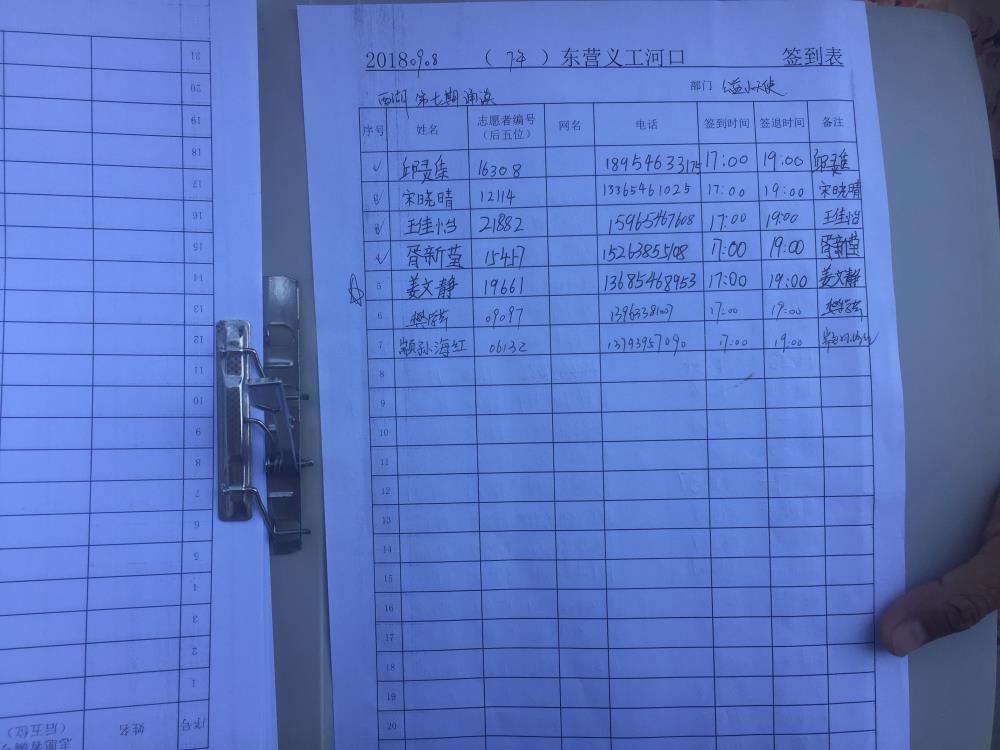 201809.8 （下午）东营义工河口 签到表
西湖 第七期 诵读 部门 公益小天使
序号 姓名 志愿者编号（后五位） 网名 电话 签到时间 签退时间 备注
16308 18954633175 17:00 19:00
2 宋晓晴 12114 13365461025 17:00 19:00 宋晓晴
3 王佳怡 21882 15965467608 17:00 19:00 王佳怡
4 胥新莹 15457 15263855108 17:00 19:00 胥新莹
5 姜文静 19661 13685468953 17:00 19:00 姜文静
6 09097 17:00 19:00
7 颛孙海红 06132 13793957090 17:00 19:00
8
9
10
11
12
13
14
15
16
17
18
19
20
21
20
19
18
17
16
15
14
13
12
11
10
9
8
7
6
5
4
3
2
1
序号 姓名 志愿者编号（后五位）